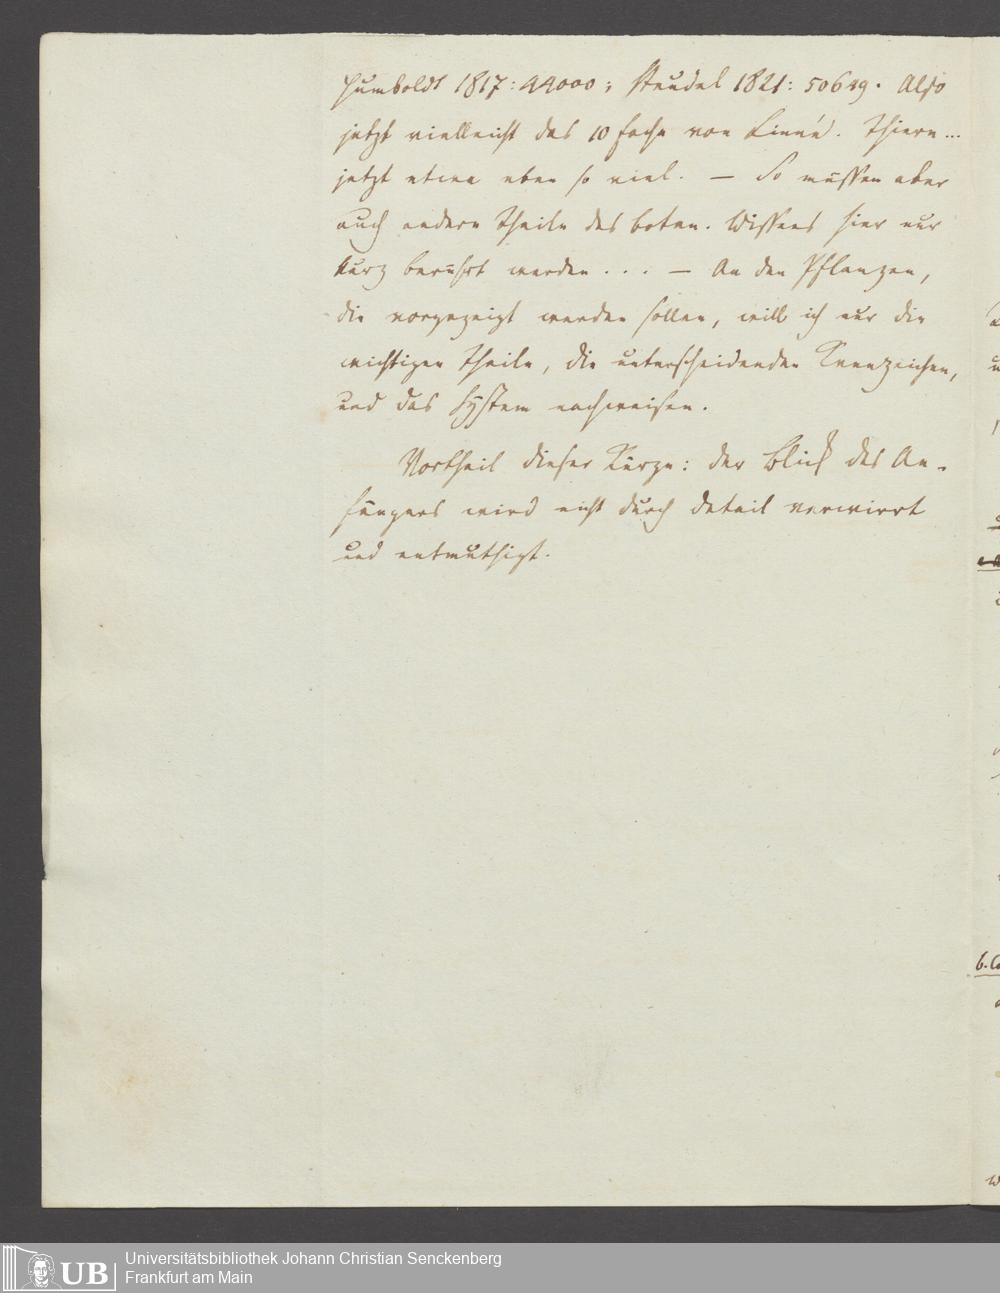 Humboldt 1817: 44000; Steudel 1821: 50649. Also
jetzt vielleicht das 10 fache von Linné. Thiere...
jetzt etwa eben so viel. — So müssen aber
auch andere Theile des botan. Wissens hier nur
kurz berührt werden... — An den Pflanzen,
die vorgezeigt werden sollen, will ich nur die
wichtigen Theile, die unterscheidenden Kennzeichen,
und das System nachweisen.
Vortheil dieser Kürze: der Blick des An-
fängers wird nicht durch Detail verwirrt
und entmuthigt.
Universitätsbibliothek Johann Christian Senckenberg
Frankfurt am Main
UB